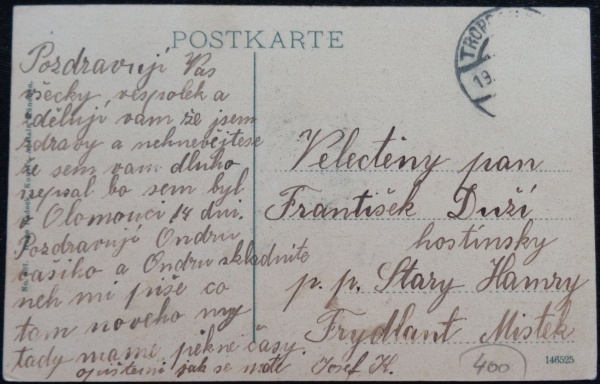 POSTKARTE
Pozdravuji Vas
všecky vespolek a
zděluji vam že jsem
zdravy a nehnevéjtese
že sem vam dluho
nepsal bo sem byl
Olomouci 14 dni.
Pozdravuji Ondru
vašiho a Ondru skladnite
neh mi piše co
tam noveho my
tady mame pěkne časy.
jak se mate Josef K.
TROPP
19.
Velectěny pan
František Duží
hostinsky
p. p. Stary Hamry
Frydlant Mistek
400
146525